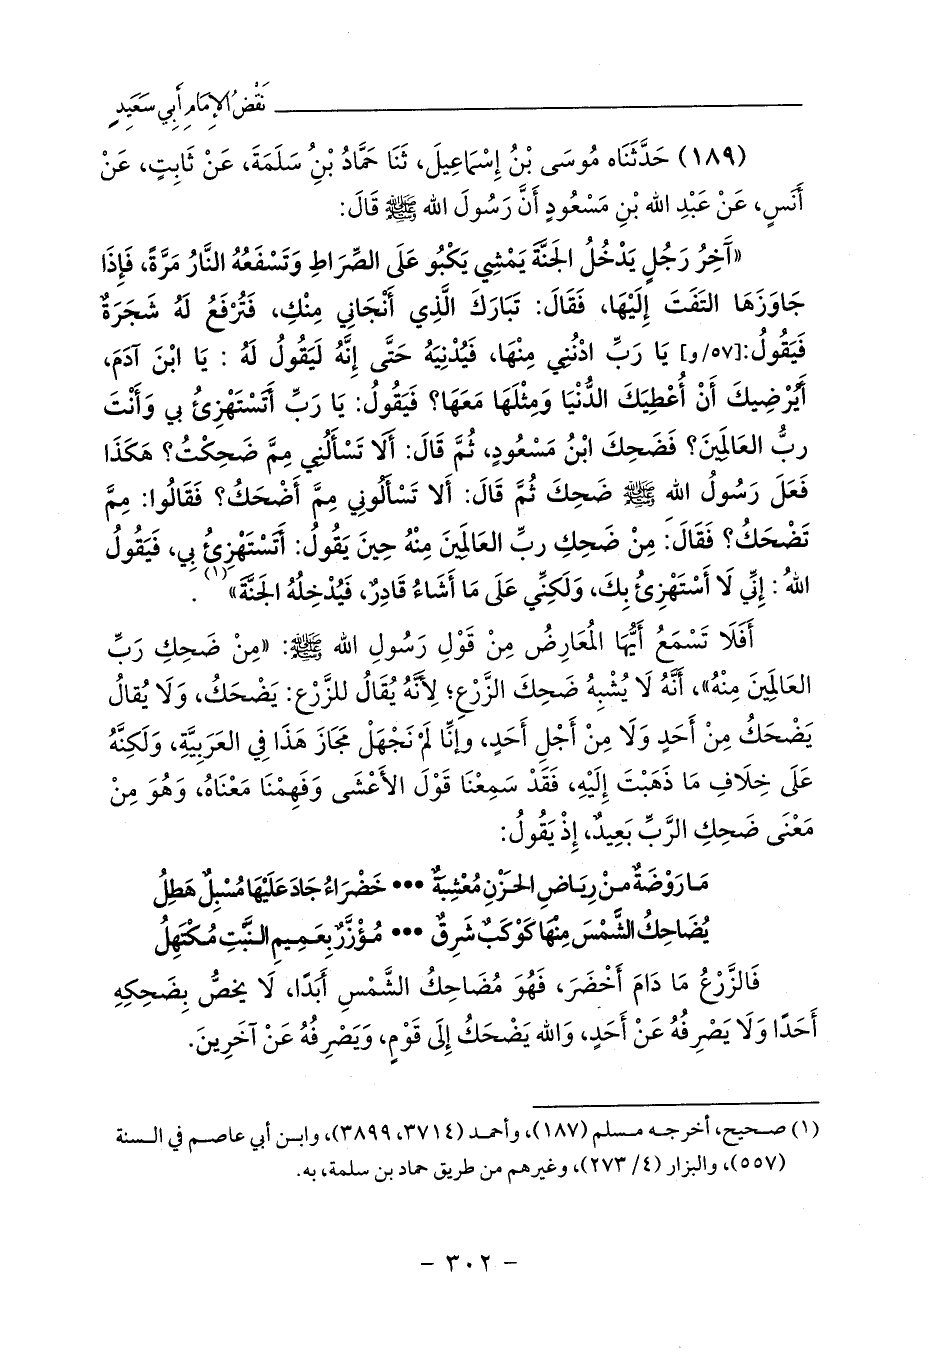 نَقْضُ الإِمَامِ أَبِي سَعِيدٍ
(١٨٩) حَدَّثَنَاه مُوسَى بْنُ إِسْمَاعِيلَ، ثَنَا حَمَّادُ بْنُ سَلَمَةَ، عَنْ ثَابِتٍ، عَنْ
أَنَسٍ، عَنْ عَبْدِ الله بْنِ مَسْعُودٍ أَنَّ رَسُولَ الله ﷺ قَالَ:
«آخِرُ رَجُلٍ يَدْخُلُ الجَنَّةَ يَمْشِي يَكْبُو عَلَى الصِّرَاطِ وَتَسْفَعُهُ النَّارُ مَرَّةً، فَإِذَا
جَاوَزَهَا التَفَتَ إِلَيْهَا، فَقَالَ: تَبَارَكَ الَّذِي أَنْجَانِي مِنْكِ، فَتُرْفَعُ لَهُ شَجَرَةٌ
فَيَقُولُ:[٥٧/و] يَا رَبِّ ادْنُنِي مِنْهَا، فَيُدْنِيَهُ حَتَّى إِنَّهُ لَيَقُولُ لَهُ : يَا ابْنَ آدَمَ،
أَيُرْضِيكَ أَنْ أُعْطِيَكَ الدُّنْيَا وَمِثْلَهَا مَعَهَا؟ فَيَقُولُ: يَا رَبِّ أَتَسْتَهْزِئُ بي وَأَنْتَ
ربُّ العَالَمِينَ؟ فَضَحِكَ ابْنُ مَسْعُودٍ، ثُمَّ قَالَ: أَلَا تَسْأَلُنِي مِمَّ ضَحِكْتُ؟ هَكَذَا
فَعَلَ رَسُولُ الله ﷺ ضَحِكَ ثُمَّ قَالَ: أَلَا تَسْأَلُونِي مِمَّ أَضْحَكُ؟ فَقَالُوا: مِمَّ
تَضْحَكُ؟ فَقَالَ: مِنْ ضَحِكِ ربِّ العَالَمِينَ مِنْهُ حِينَ يَقُولُ: أَتَسْتَهْزِئُ بِي، فَيَقُولُ
اللهُ : إِنِّي لَا أَسْتَهْزِئُ بِكَ، وَلَكِنِّي عَلَى مَا أَشَاءُ قَادِرٌ، فَيُدْخِلُهُ الجَنَّةَ»(١) .
أَفَلَا تَسْمَعُ أَيُّهَا المُعَارِضُ مِنْ قَوْلِ رَسُولِ الله ﷺ: «مِنْ ضَحِكِ رَبِّ
العَالَمِينَ مِنْهُ»، أَنَّهُ لَا يُشْبِهُ ضَحِكَ الزَّرْعِ؛ لِأَنَّهُ يُقَالُ للزَّرْعِ: يَضْحَكُ، وَلَا يُقالُ
يَضْحَكُ مِنْ أَحَدٍ وَلَا مِنْ أَجْلِ أَحَدٍ، وإِنَّا لَمْ نَجْهَلْ مَجَازَ هَذَا فِي العَرَبِيَّةِ، وَلَكِنَّهُ
عَلَى خِلَافِ مَا ذَهَبْتَ إِلَيْهِ، فَقَدْ سَمِعْنَا قَوْلَ الأَعْشَى وَفَهِمْنَا مَعْنَاهُ، وَهُوَ مِنْ
مَعْنَى ضَحِكِ الرَّبِّ بَعِيدٌ، إِذْ يَقُولُ:
مَا رَوْضَةٌ مِنْ رِيَاضِ الحَزْنِ مُعْشِبَةٌ ••• خَضْرَاءُ جَادَ عَلَيْهَا مُسْبِلٌ هَطِلُ
يُضَاحِكُ الشَّمْسَ مِنْهَا كَوْكَبٌ شَرِقٌ ••• مُؤَزَّرٌ بِعَمِيمِ النَّبْتِ مُكْتَهِلُ
فَالزَّرْعُ مَا دَامَ أَخْضَرَ، فَهُوَ مُضَاحِكُ الشَّمْسِ أَبَدًا، لَا يخصُّ بِضَحِكِهِ
أَحَدًا وَلَا يَصْرِفُهُ عَنْ أَحَدٍ، وَالله يَضْحَكُ إِلَى قَوْمٍ، وَيَصْرِفُهُ عَنْ آخَرِينَ.
(١) صحيح، أخرجه مسلم (١٨٧)، وأحمد (٣٧١٤، ٣٨٩٩)، وابن أبي عاصم في السنة
(٥٥٧)، والبزار (٤/ ٢٧٣)، وغيرهم من طريق حماد بن سلمة، به.
- ٣٠٢ -